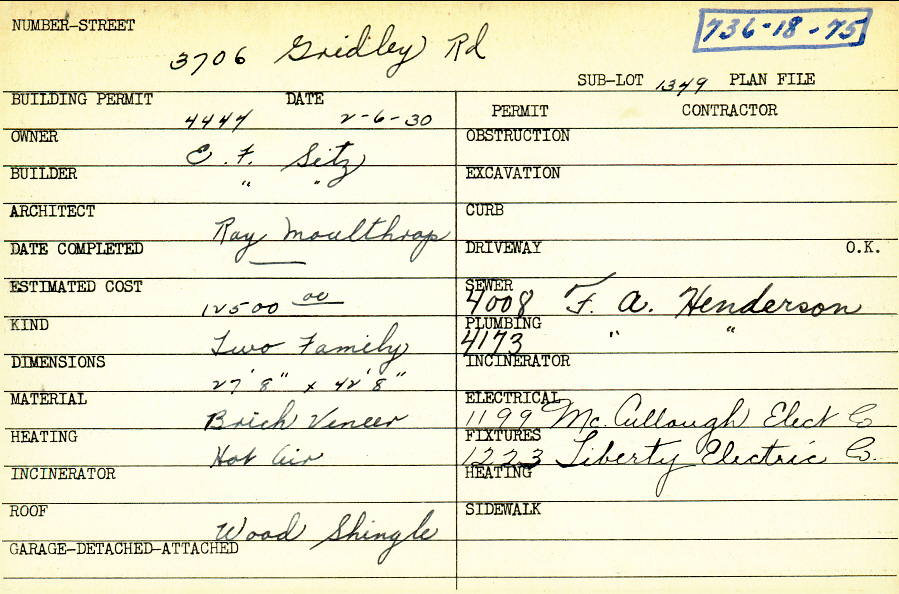 NUMBER-STREET 3706 Gridley Rd
736-18-75
SUB-LOT 1349 PLAN FILE
BUILDING PERMIT 4444 DATE 2-6-30
OWNER E. F. Sitz
BUILDER " "
ARCHITECT Ray Moulthrop
DATE COMPLETED —
ESTIMATED COST 12500 00
KIND Two Family
DIMENSIONS 27'8" x 42'8"
MATERIAL Brick Veneer
HEATING Hot Air
INCINERATOR
ROOF Wood Shingle
GARAGE-DETACHED-ATTACHED
PERMIT CONTRACTOR
OBSTRUCTION
EXCAVATION
CURB
DRIVEWAY O.K.
SEWER 4008 F. A. Henderson
PLUMBING 4173 " "
INCINERATOR
ELECTRICAL 1199 Mc. Cullough Elect Co
FIXTURES 1223 Liberty Electric Co.
HEATING
SIDEWALK